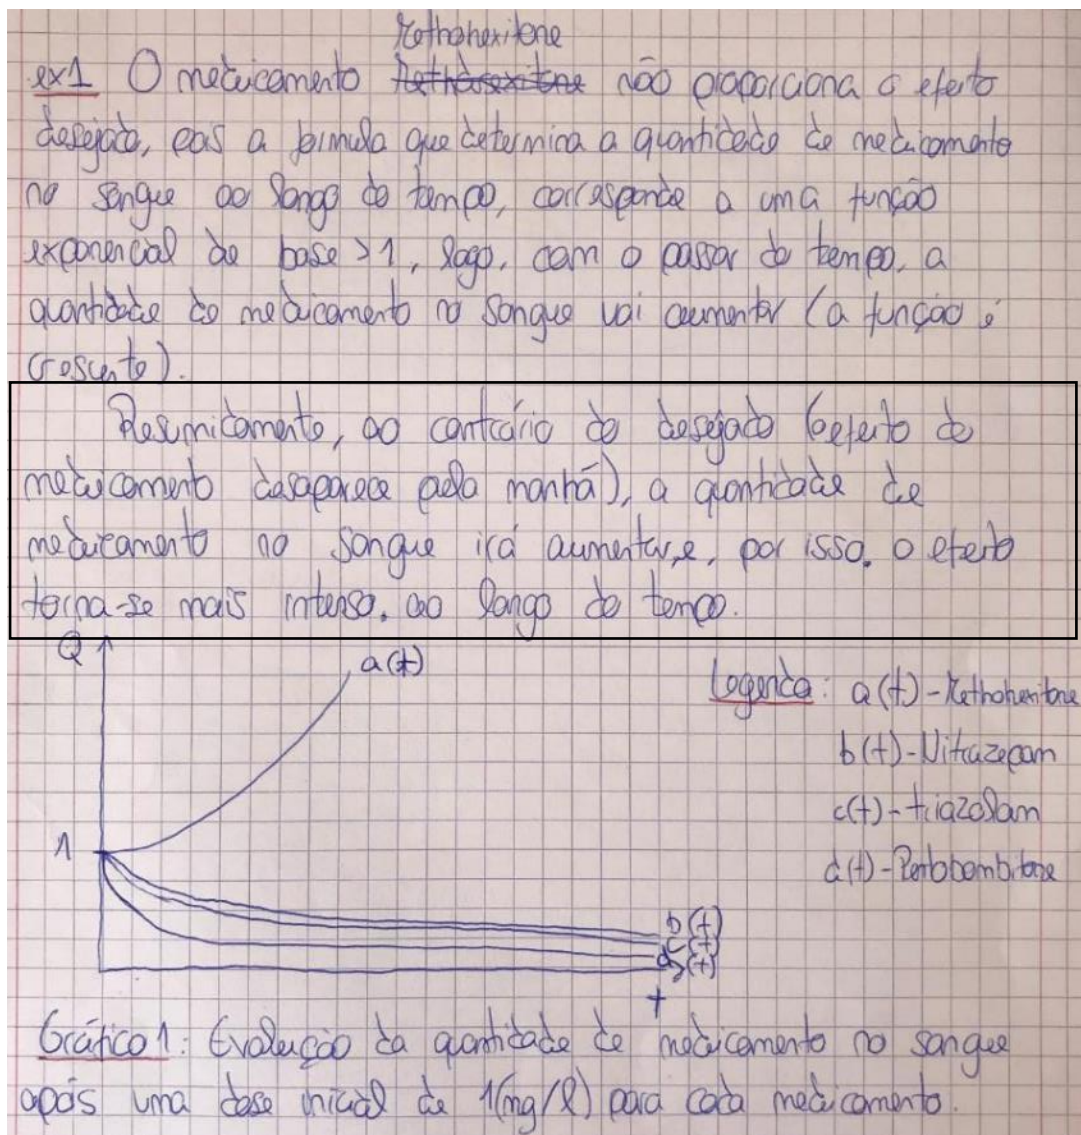 Methohexitone
ex1 O medicamento não proporciona o efeito
desejado, pois a fórmula que determina a quantidade de medicamento
no sangue ao longo do tempo, corresponde a uma função
exponencial de base >1, logo, com o passar do tempo, a
quantidade de medicamento no sangue vai aumentar (a função é
crescente).
Resumidamente, ao contrário do desejado (efeito do
medicamento desaparece pela manhã), a quantidade de
medicamento no sangue irá aumentar, e, por isso, o efeito
torna-se mais intenso, ao longo do tempo.
Q
a(t)
Legenda: a(t) - Methohexitone
b(t) - Nitrazepam
c(t) - triazolam
1
d(t) - Pentobombitone
b(t)
c(t)
d(t)
t
Gráfico 1: Evolução da quantidade de medicamento no sangue
após uma dose inicial de 1(mg/l) para cada medicamento.